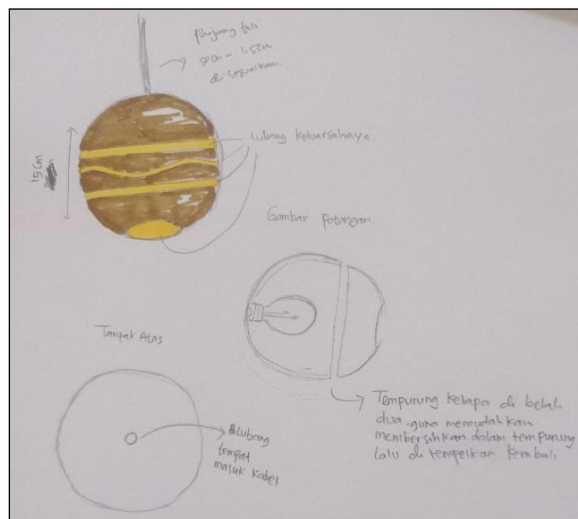 Panjang tali
50cm - 1,5cm
di sesuaikan
15cm
Lubang keluar cahaya
Gambar potongan
Tampak Atas
Lubang
tempat
masuk kabel
Tempurung kelapa di belah
dua, guna memudahkan
membersihkan dalam tempurung
lalu di tempelkan kembali